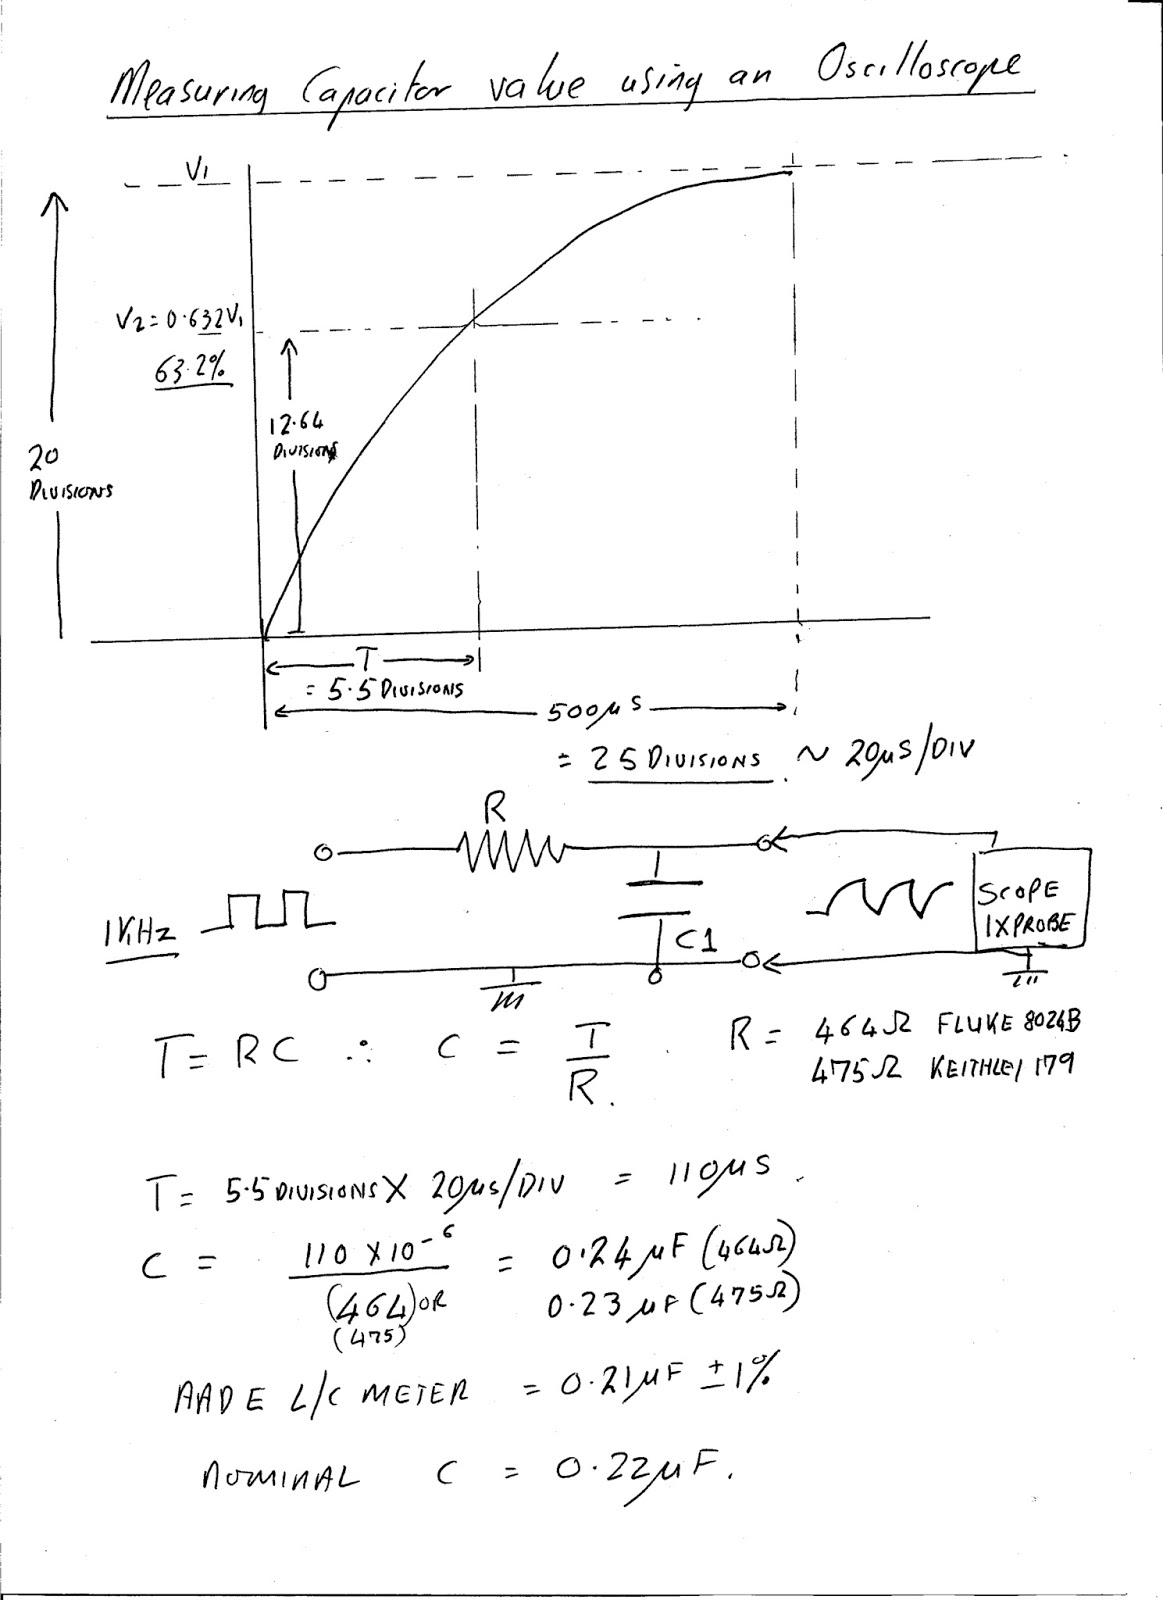 Measuring Capacitor value using an Oscilloscope
V1
V2 = 0.632V1
63.2%
12.64
DIVISIONS
20
DIVISIONS
T
= 5.5 DIVISIONS
500µS
= 25 DIVISIONS ~ 20µS/DIV
R
1KHz
C1
SCOPE
1XPROBE
T = RC ∴ C = T/R. R = 464Ω FLUKE 8024B
475Ω KEITHLEY 179
T = 5.5 DIVISIONS X 20µs/DIV = 110µS.
C = 110 X 10-6 / (464) OR (475) = 0.24µF (464Ω)
0.23µF (475Ω)
AADE L/C METER = 0.21µF ±1%
NOMINAL C = 0.22µF.